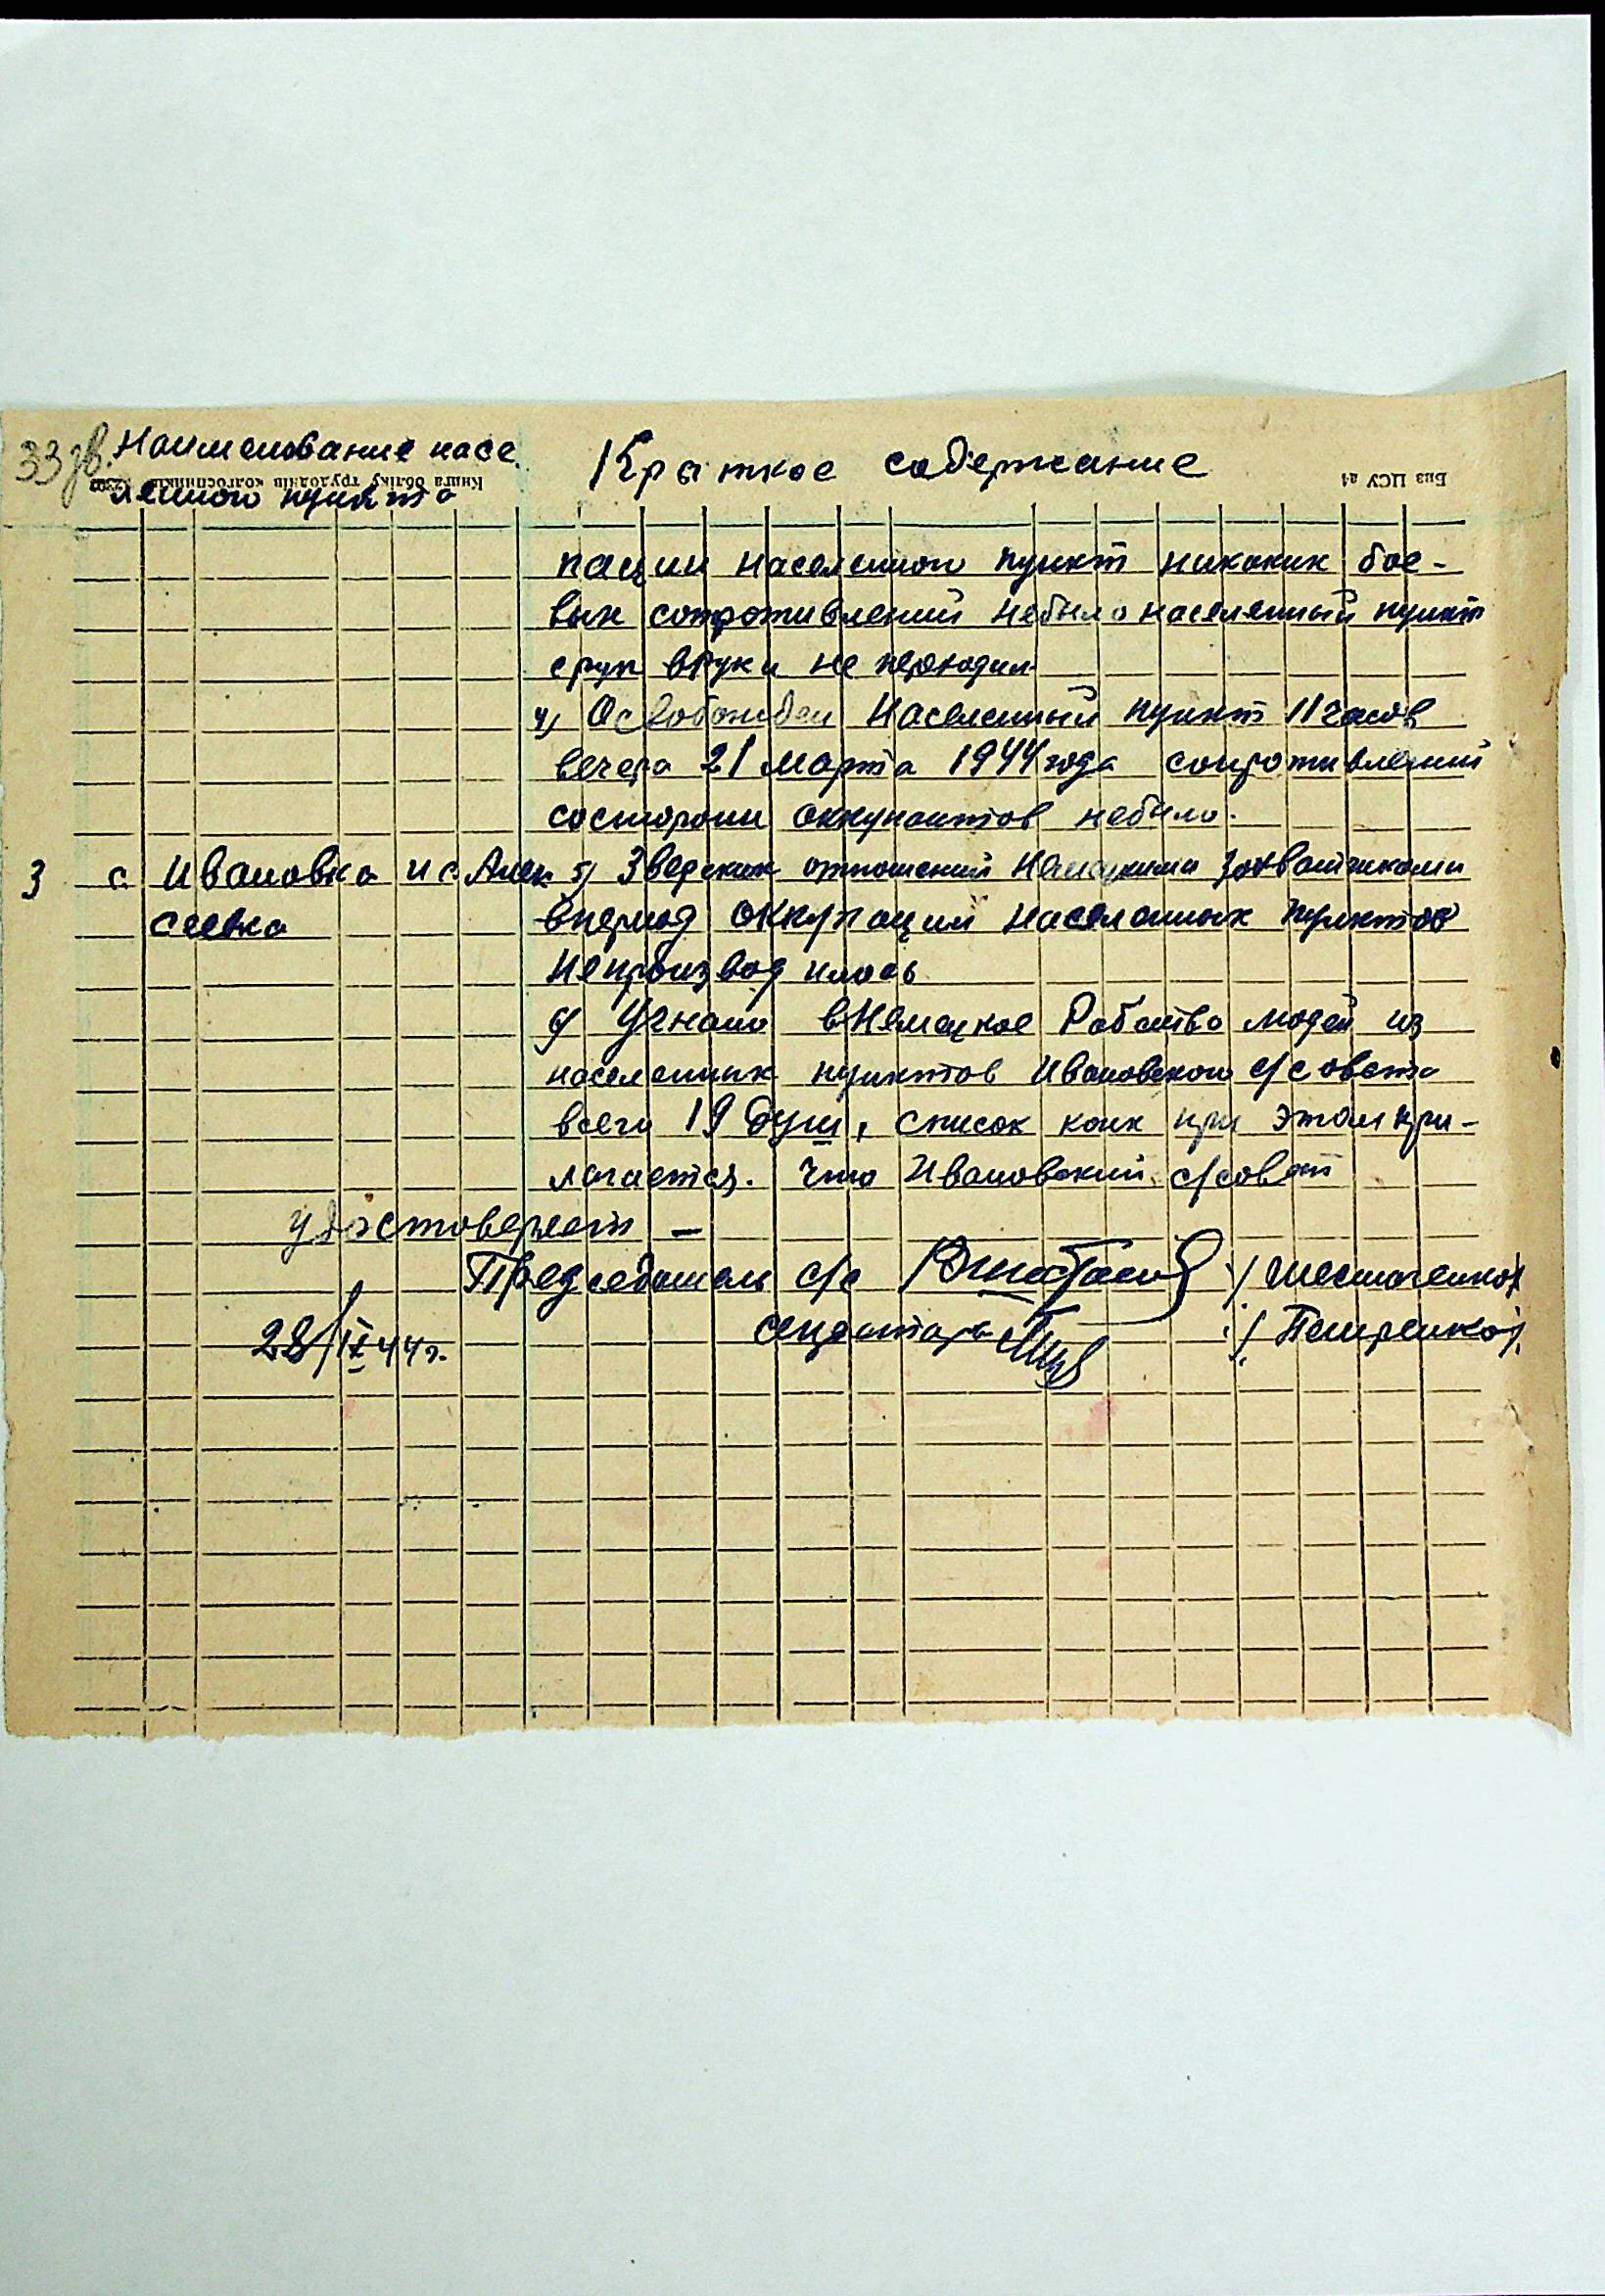 33 зв. Наименование насе.
Книга обліку трудоднів колгоспників
ленного пункта
Краткое содержание
Биз ЦСУ
пации населенного пункт никаких бое-
вых сопротивлений небыло населенный пункт
срук вруки не переходил
4) Освобожден Населенный пункт 11 часов
вечера 21 марта 1944 года сопротивлений
состороны оккупантов небыло.
3 с. Ивановка и с Алек 5) Зверских отношений Немецкими захватчиками
сеевка впериод оккупации населенных пунктов
Непроизводилось
6) Угнано вНемецкое Рабство людей из
населенных пунктов Ивановского с/совета
всего 19 душ, список коих при этом при-
лагается. Что Ивановский с/совет
удостоверяет –
Председатель с/с /Шестаченко/
секретарь /Петренко/
28/IX 44г.